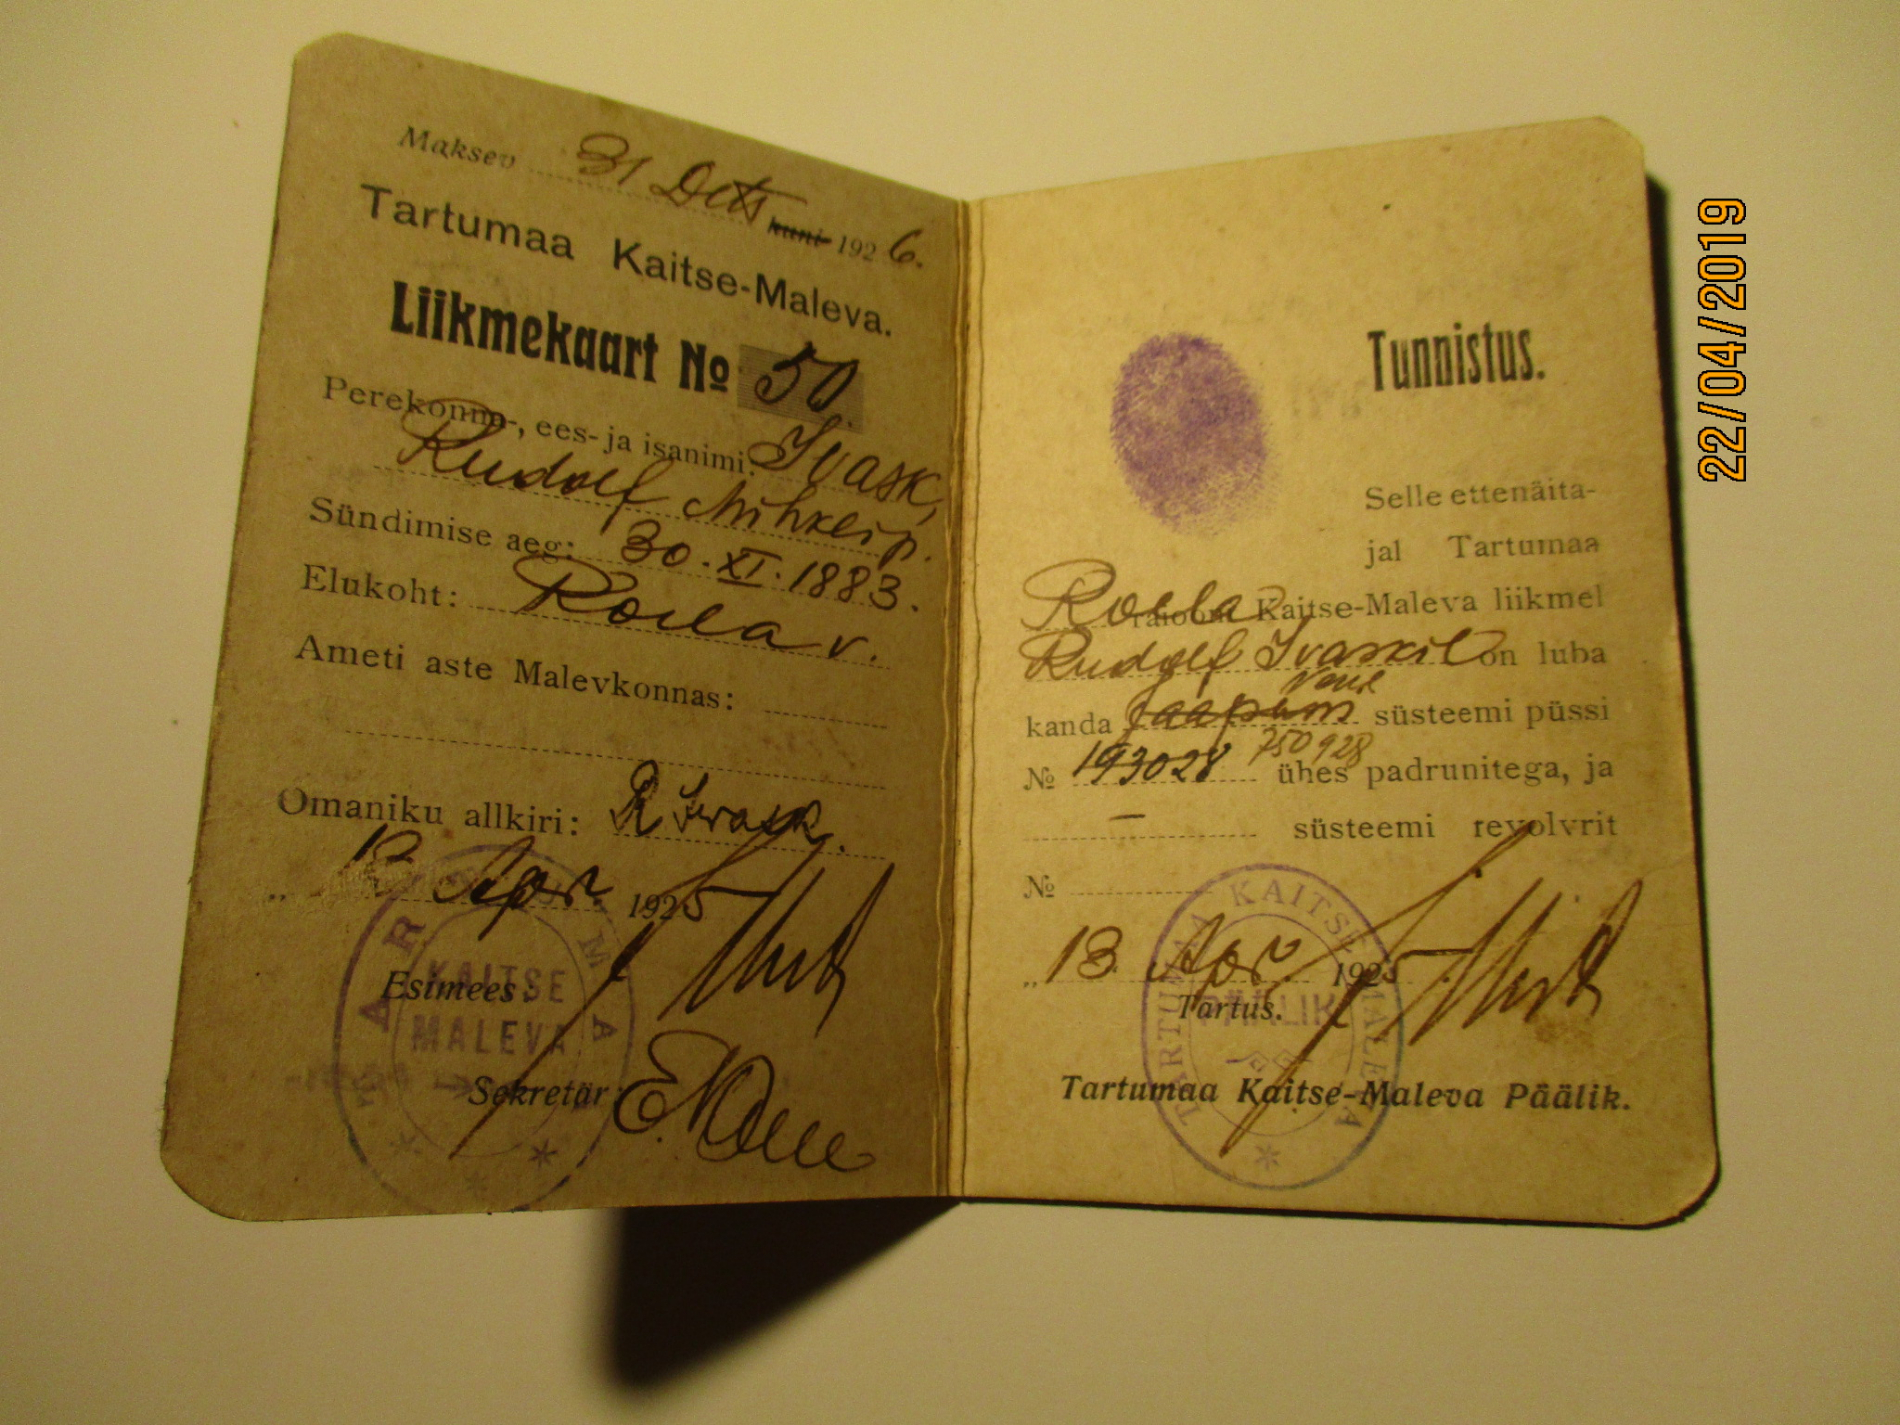 Maksev 31 Dets kuni 1926.
Tartumaa Kaitse-Maleva.
Liikmekaart № 50.
Perekonna-, ees- ja isanimi: Ivask,
Rudolf Mihkeip.
Sündimise aeg: 30.XI.1883.
Elukoht: Roela v.
Ameti aste Malevkonnas:
Omaniku allkiri: R Ivask.
„ 13 Apr. 1925
TARTUMAA
KAITSE
MALEVA
Esimees:
Sekretär:
Tunnistus.
Selle ettenäita-
jal Tartumaa
Roela raiooni Kaitse-Maleva liikmel
Rudolf Ivaskil on luba
vene
kanda jaapani süsteemi püssi
750928
№ 193028 ühes padrunitega, ja
— süsteemi revolvrit
№
„ 13. Apr. 1925
Tartus.
TARTUMAA KAITSE MALEVA
PÄÄLIK
Tartumaa Kaitse-Maleva Päälik.
22/04/2019